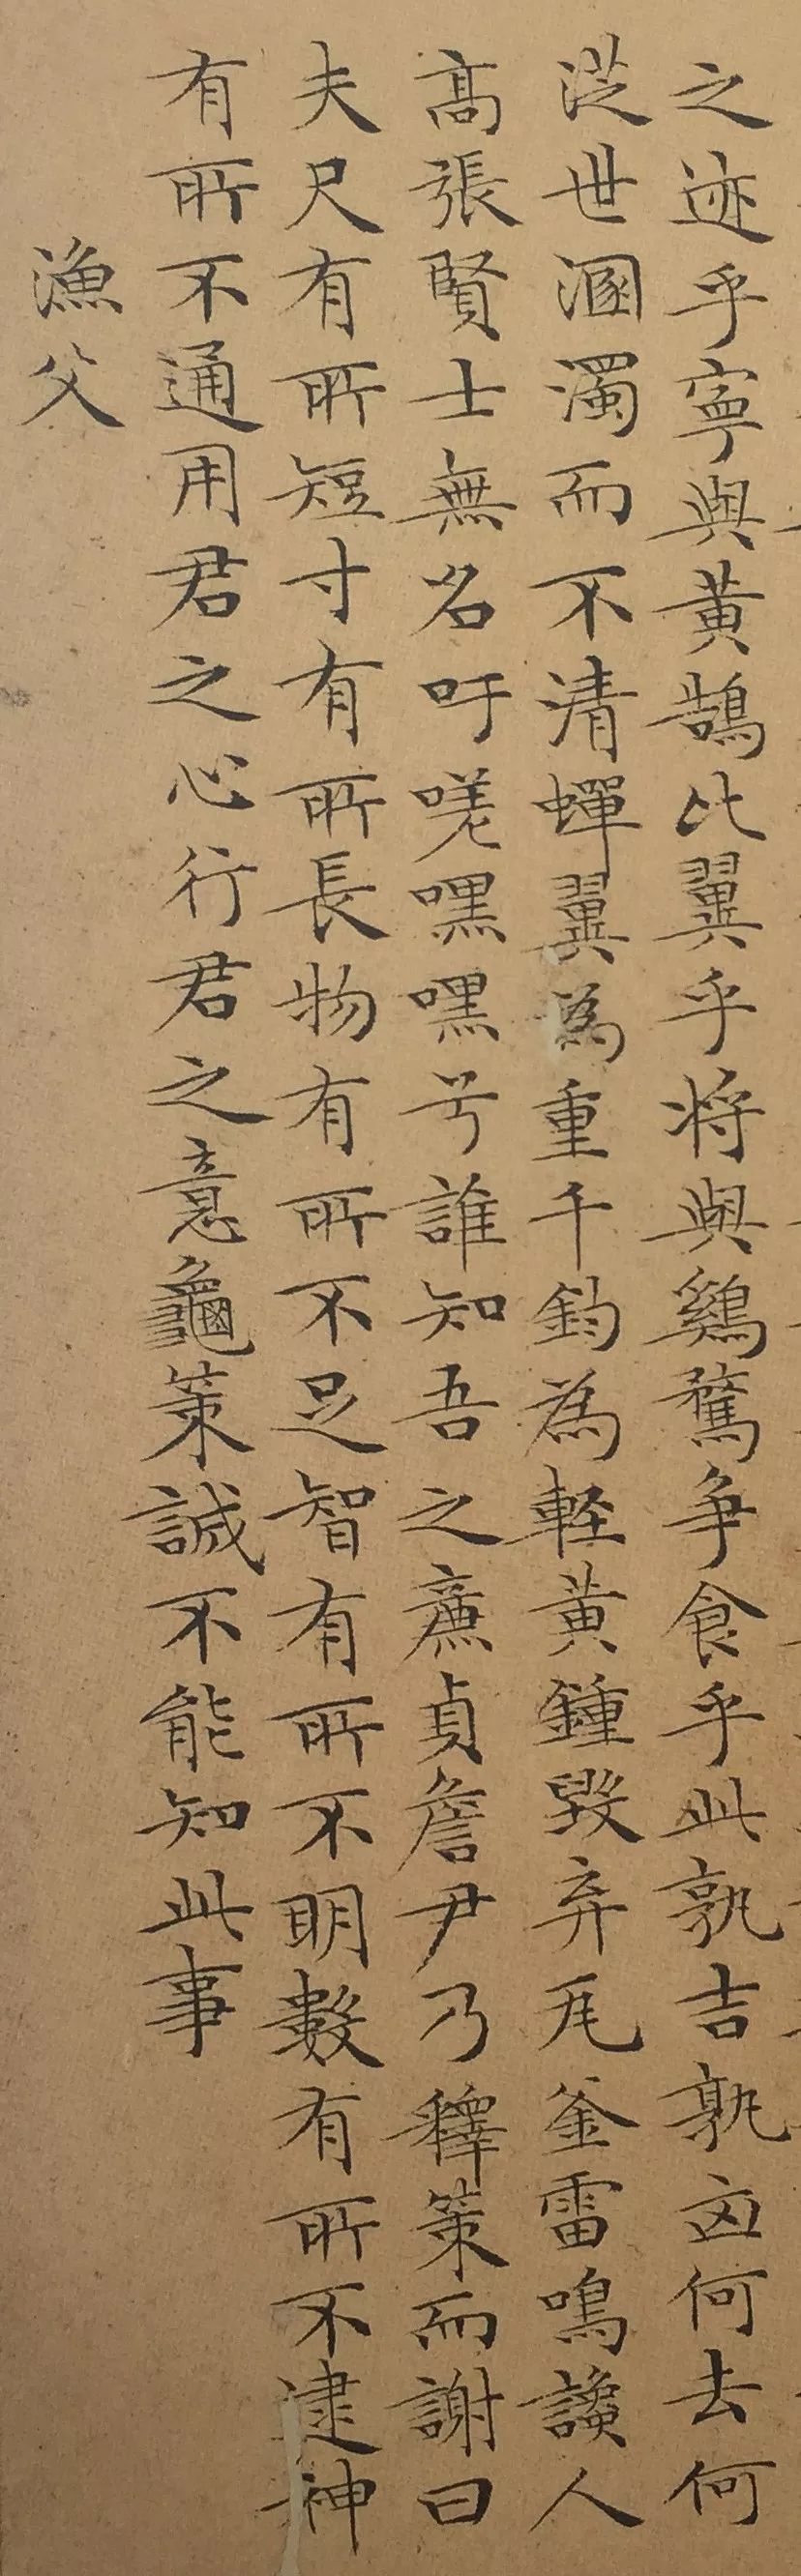 之迹乎寧與黃鵠比翼乎將與鷄鶩爭食乎此孰吉孰凶何去何
從世溷濁而不清蟬翼為重千鈞為輕黃鍾毀棄瓦釜雷鳴讒人
高張賢士無名吁嗟嘿嘿兮誰知吾之廉貞詹尹乃釋策而謝曰
夫尺有所短寸有所長物有所不足智有所不明數有所不逮神
有所不通用君之心行君之意龜策誠不能知此事
漁父